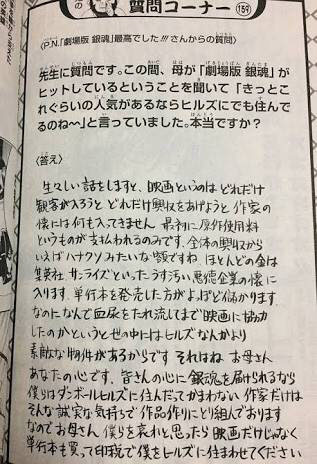 の
質問コーナー
159
〈P.N.「劇場版 銀魂」最高でした!!!さんからの質問〉
先生に質問です。この間、母が「劇場版 銀魂」が
ヒットしているということを聞いて「きっとこ
れぐらいの人気があるならヒルズにでも住んで
るのね〜」と言っていました。本当ですか?
〈答え〉
生々しい話をしますと、映画というのは どれだけ
観客が入ろうと どれだけ興収をあげようと 作家の
懐には何も入ってきません 最初に原作使用料
というものが支払われるのみです。全体の興収から
いえばハナクソみたいな額ですね ほとんどの金は
集英社 サンライズといったうす汚い悪徳企業の懐に
入ります。単行本を発売した方がよっぽど儲かります。
なのになんで血尿をたれ流してまで映画に協力
したのかというと世の中にはヒルズなんかより
素敵な物件があるからです それはね お母さん
あなたの心です。皆さんの心に銀魂を届けられるなら
僕らはダンボールヒルズに住んだってかまわない 作家だけは
そんな誠実な気持ちで作品作りにとり組んでおります
なのでお母さん 僕らを哀れと思ったら映画だけじゃなく
単行本も買って印税で僕をヒルズに住まわせてください